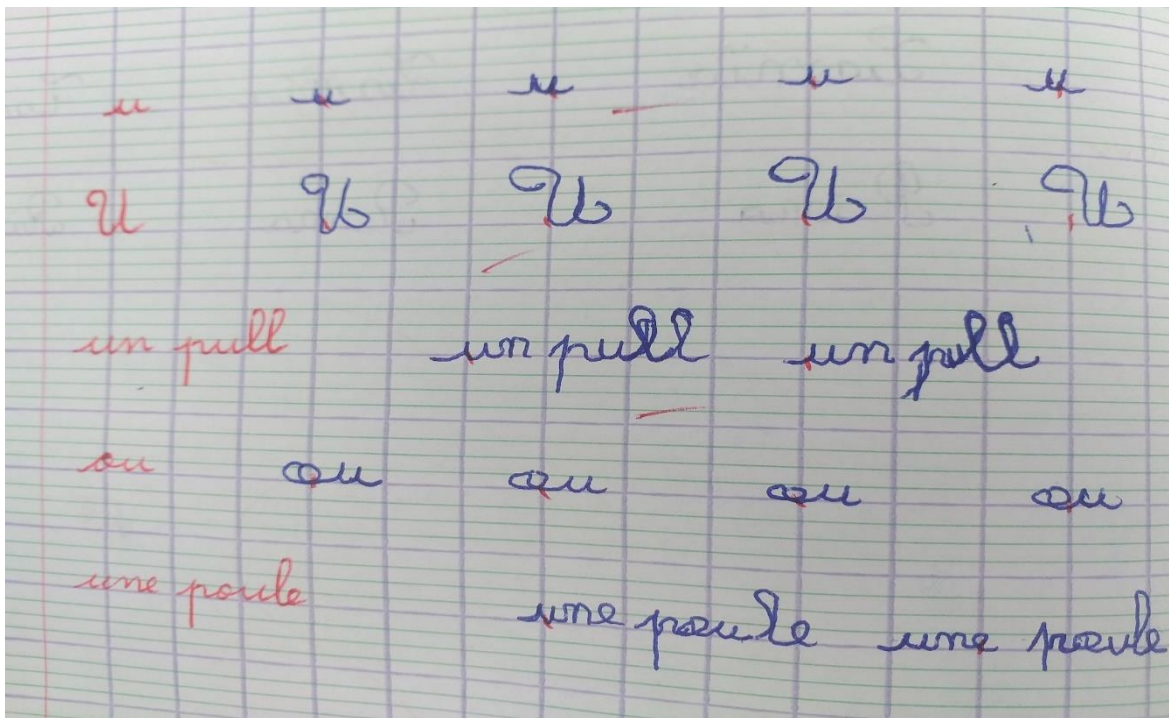 u u u u u
U U U U U
un pull un pull un pull
ou ou ou ou ou
une poule une poule une poule